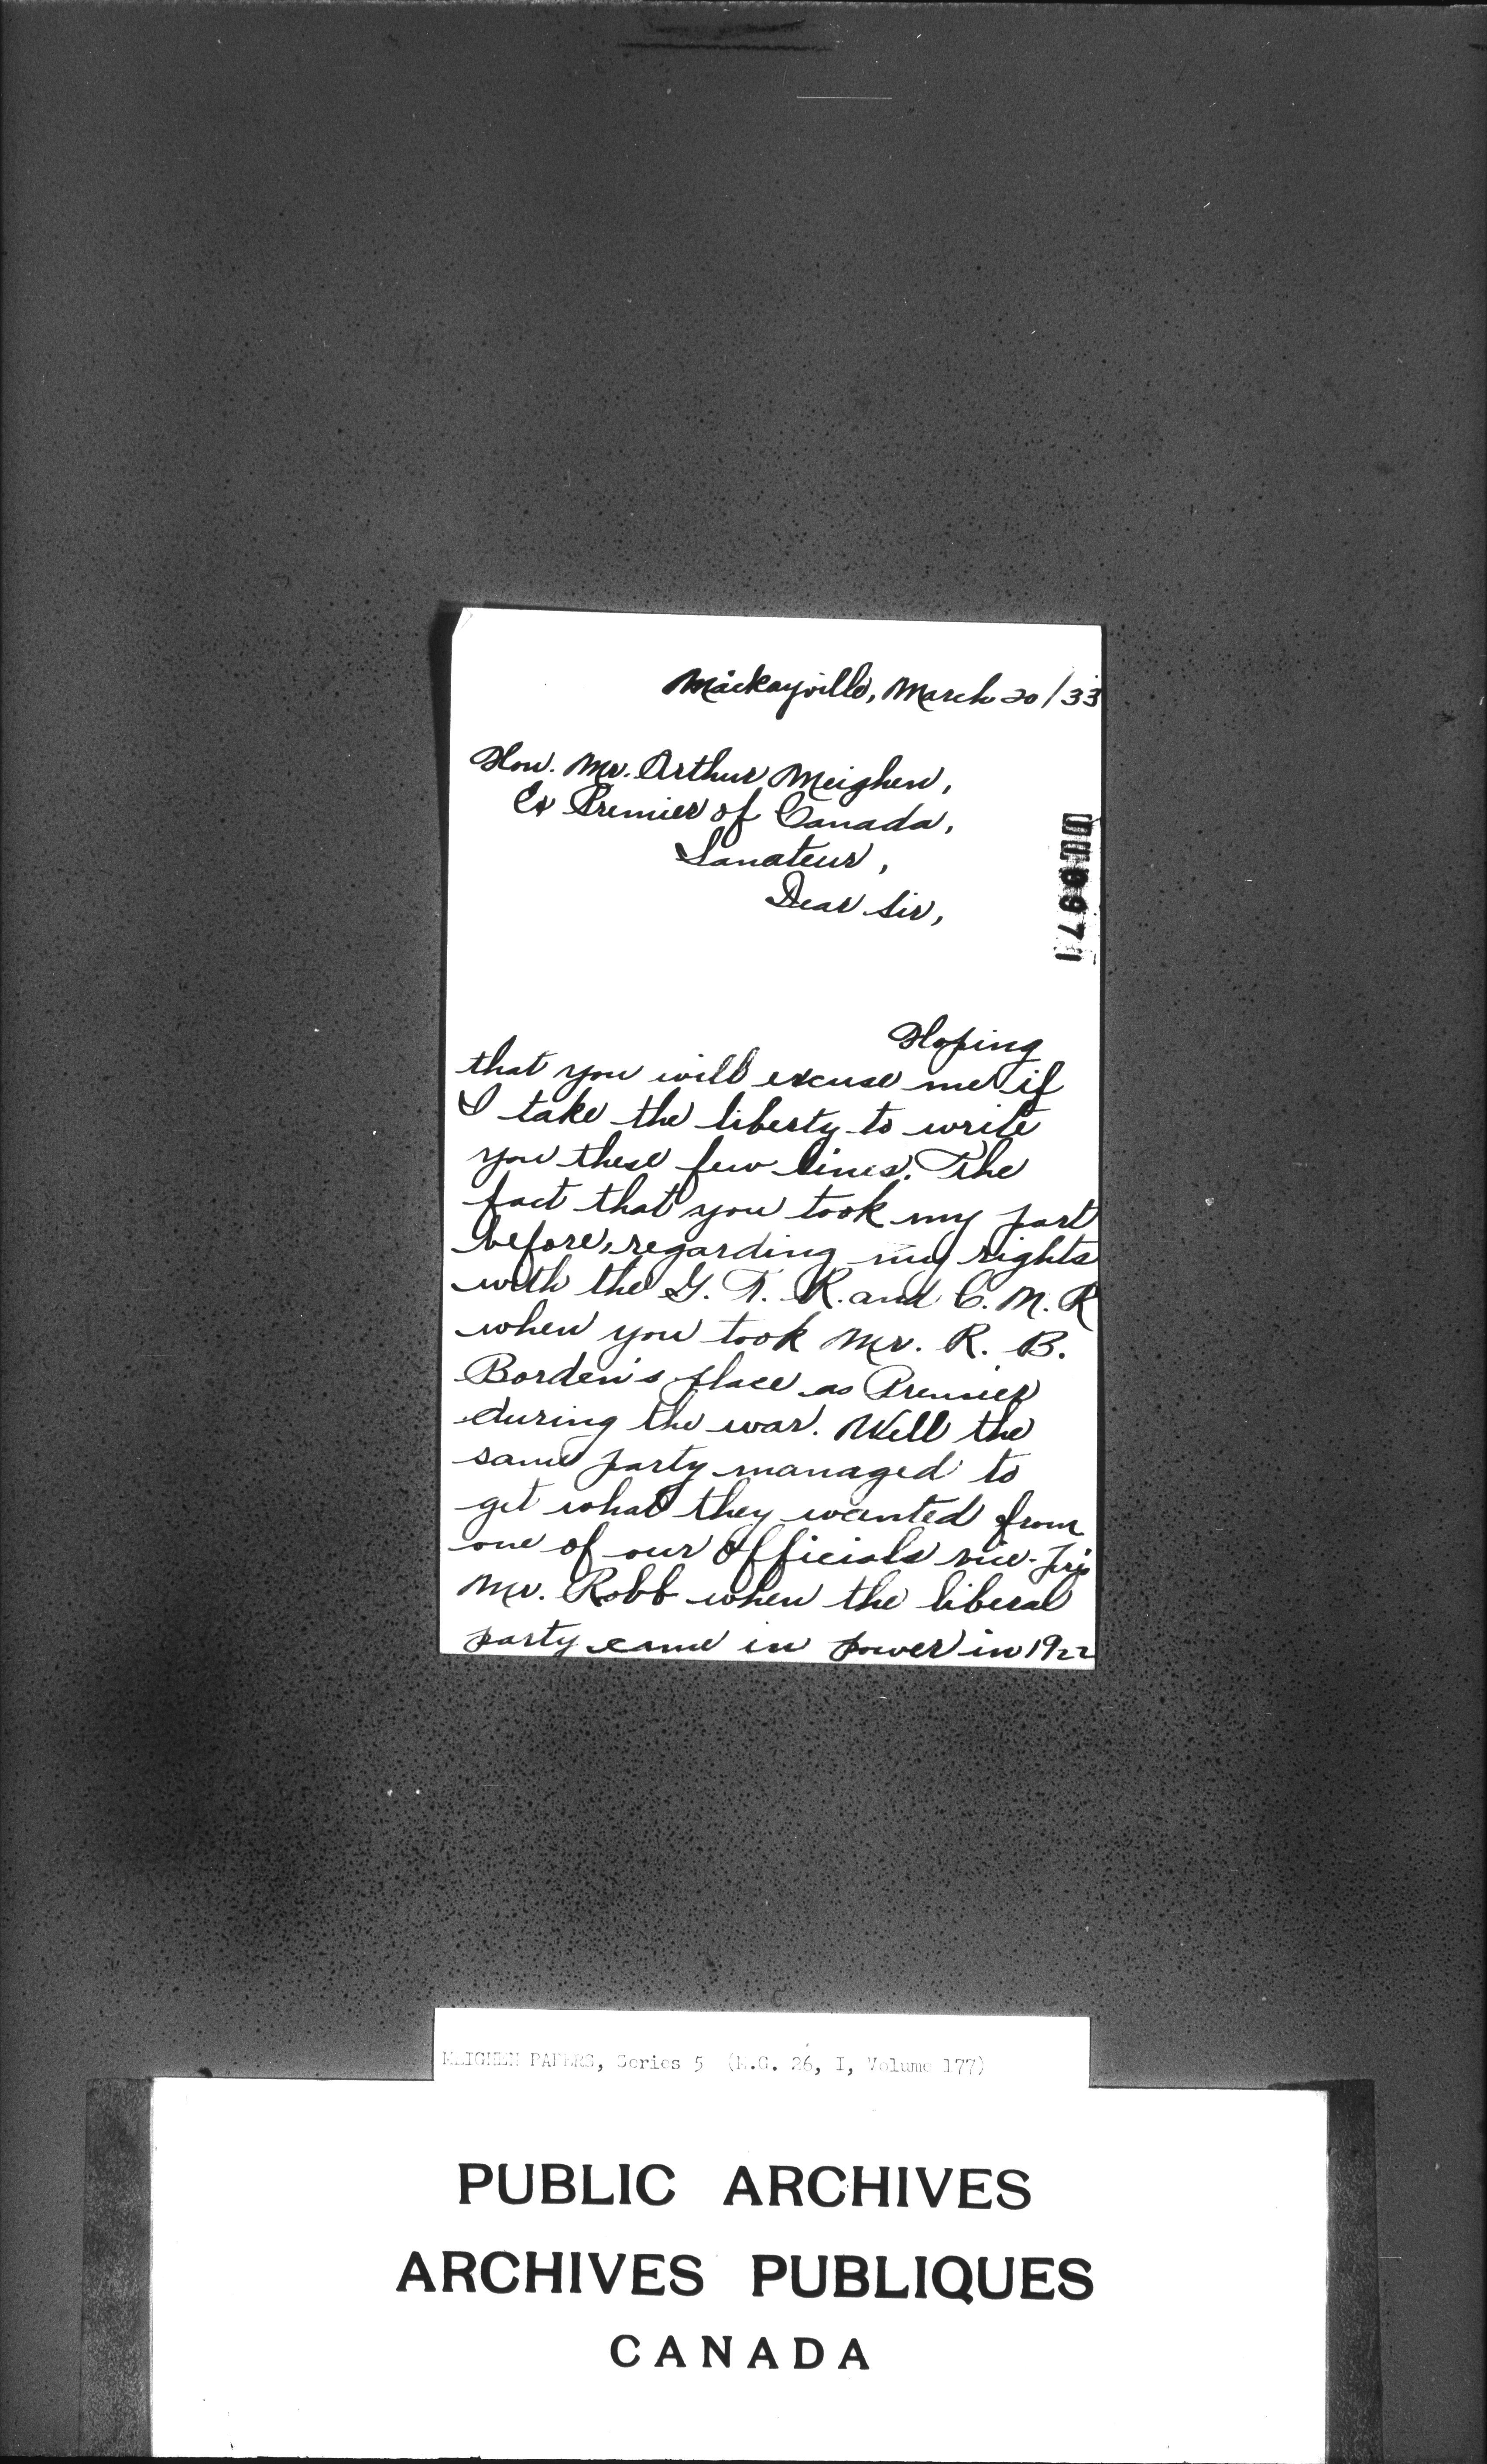 Mackayville, March 20/33
Hon. Mr. Arthur Meighen,
Ex Premier of Canada,
Sanateur,
Dear Sir,
Hoping
that you will excuse me if
I take the liberty to write
you these few lines. The
fact that you took my part
before, regarding my rights
with the G. T. R. and C. N. R
when you took Mr. R. B.
Borden's place as Premier
during the war. Well the
same party managed to
get what they wanted from
one of our officials vice-
Mr. Robb when the liberal
party came in power in 1922
MEIGHEN PAPERS, Series 5 (M.G. 26, I, Volume 177)
PUBLIC ARCHIVES
ARCHIVES PUBLIQUES
CANADA